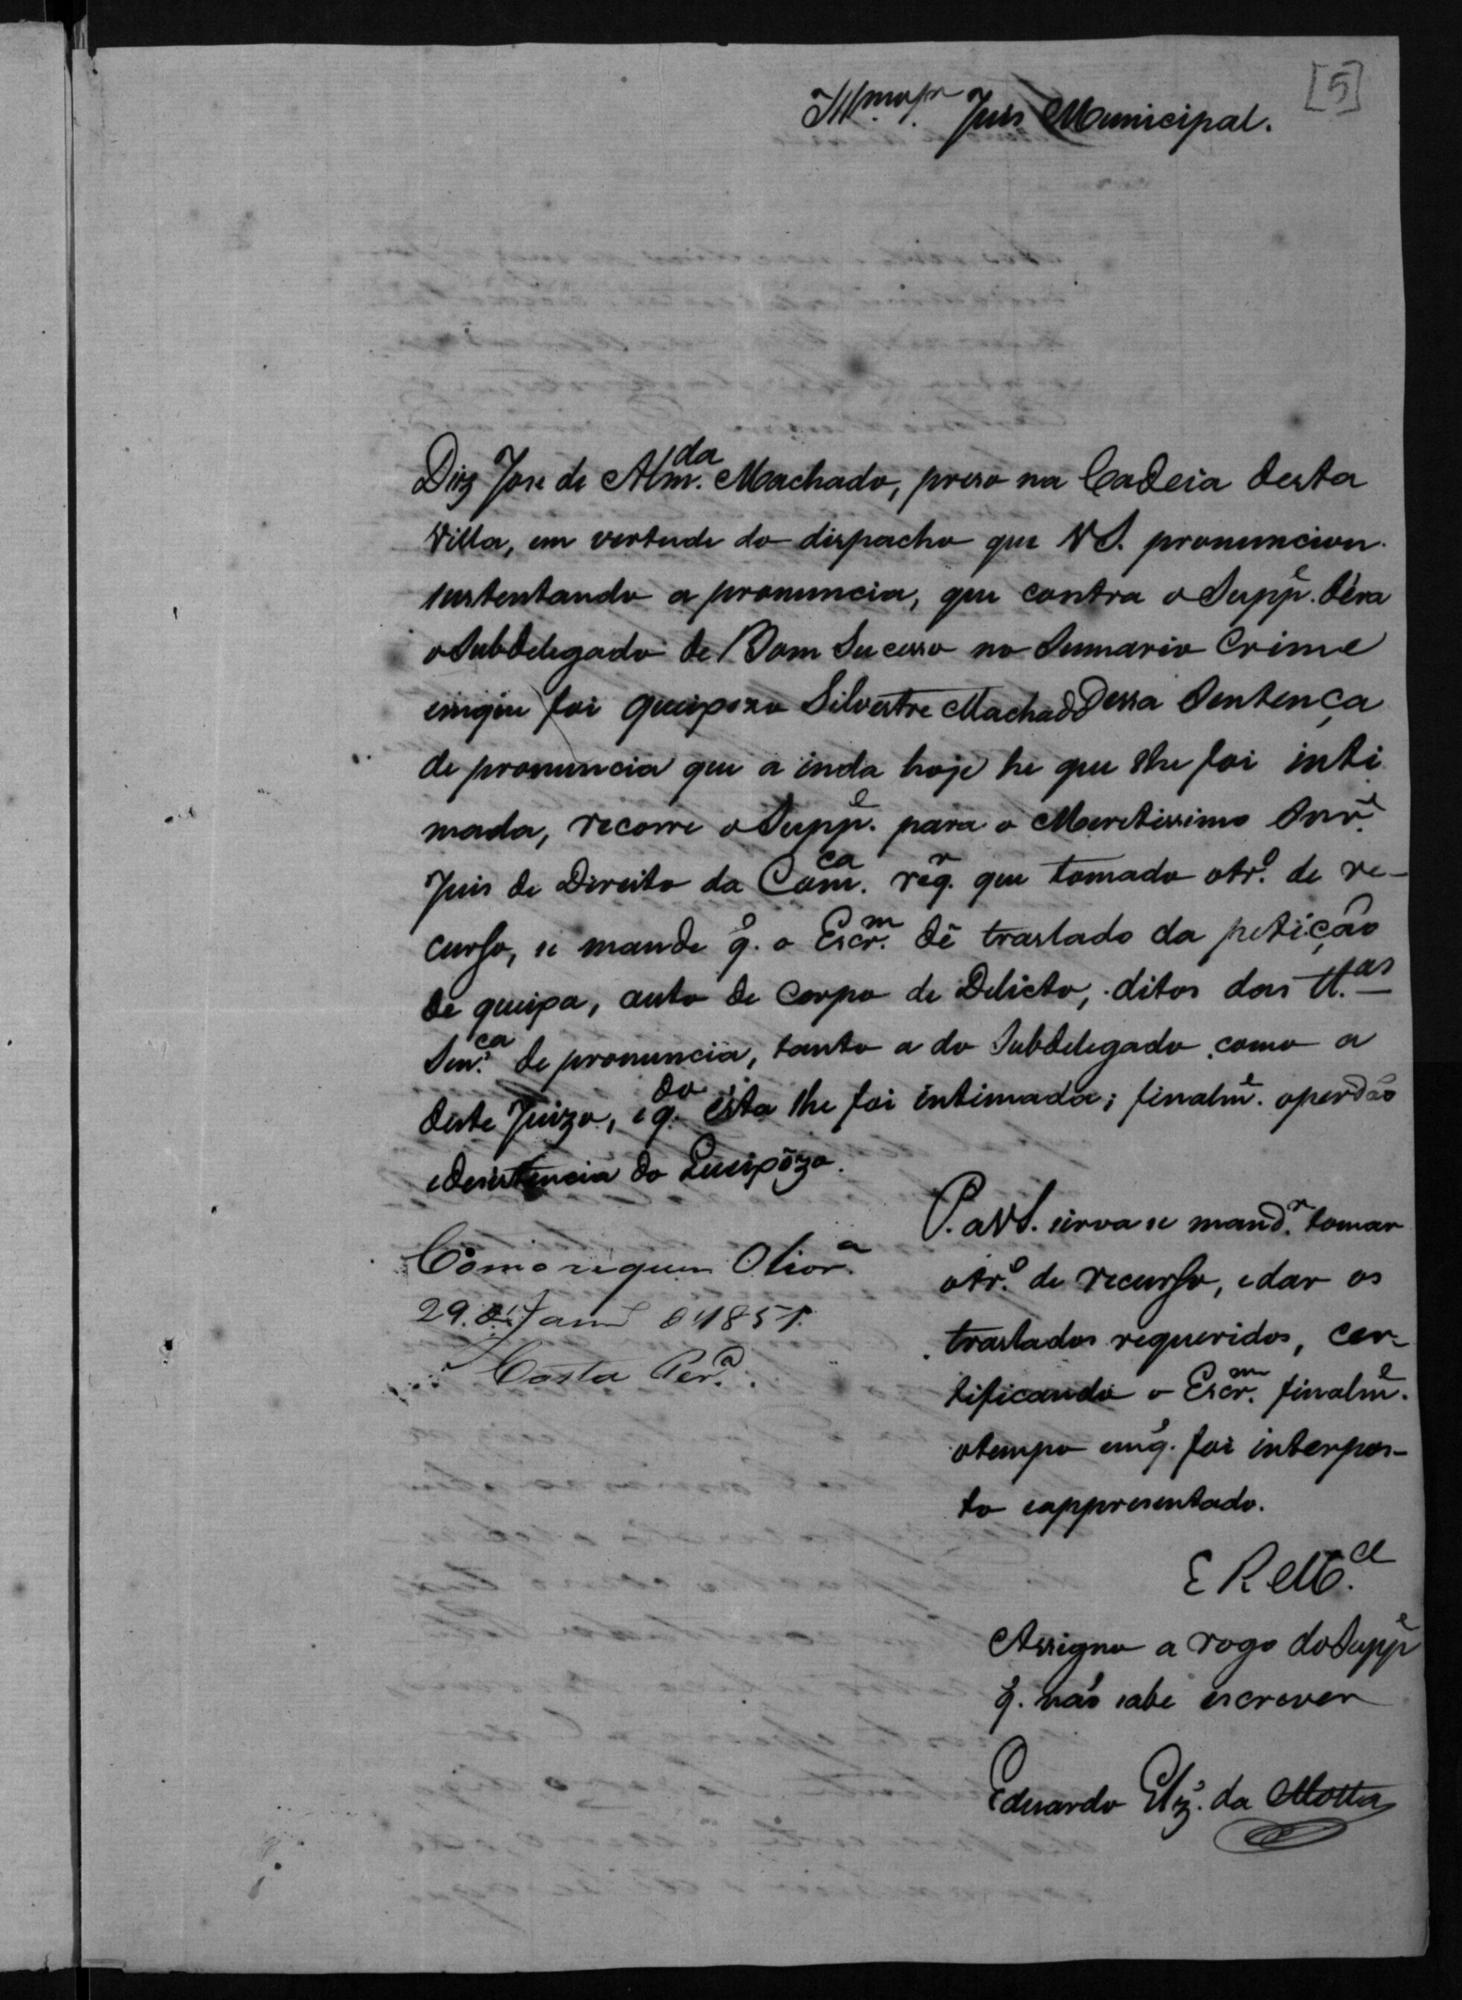 [5]
Illmo Snr. Juis Municipal.
Diz Jose de Almda. Machado, preso na Cadeia desta
Villa, em vertude do dispacho que VS. pronunciou
sustentando a pronuncia, que contra o Suppe. déra
o Subdelegado de Bom Sucesso no Sumario Crime
emque foi queipozo Silvestre Machado Dessa Sentença
de pronuncia que a inda hoje he que lhe foi inti
mada, recorre o Suppe. para o Meretissimo Snr.
Juis de Direito da Comca. reqr. que tomado otro. de re-
curso, se mande q. o Escrm. dê traslado da petição
de queipa, auto de Corpo de Delicto, ditos das ttas
Senca. de pronuncia, tanto a do Subdelegado como a
deste Juizo, e qdo. ésta lhe foi intimada; finalme. operdão
edesistencia do Queipôzo.
P. a VS. sirva se mandr. tomar
otro. de recurso, edar os
traslados requeridos, cer-
tificando o Escrm. finalme.
otempo emq. foi interpos-
to eappresentado.
E R Mce.
Assigno a rogo do Suppe
q. não sabe escrever
Eduardo Elz. da Motta
Como requer
29. de Janro de 1851.
Costa Pera.